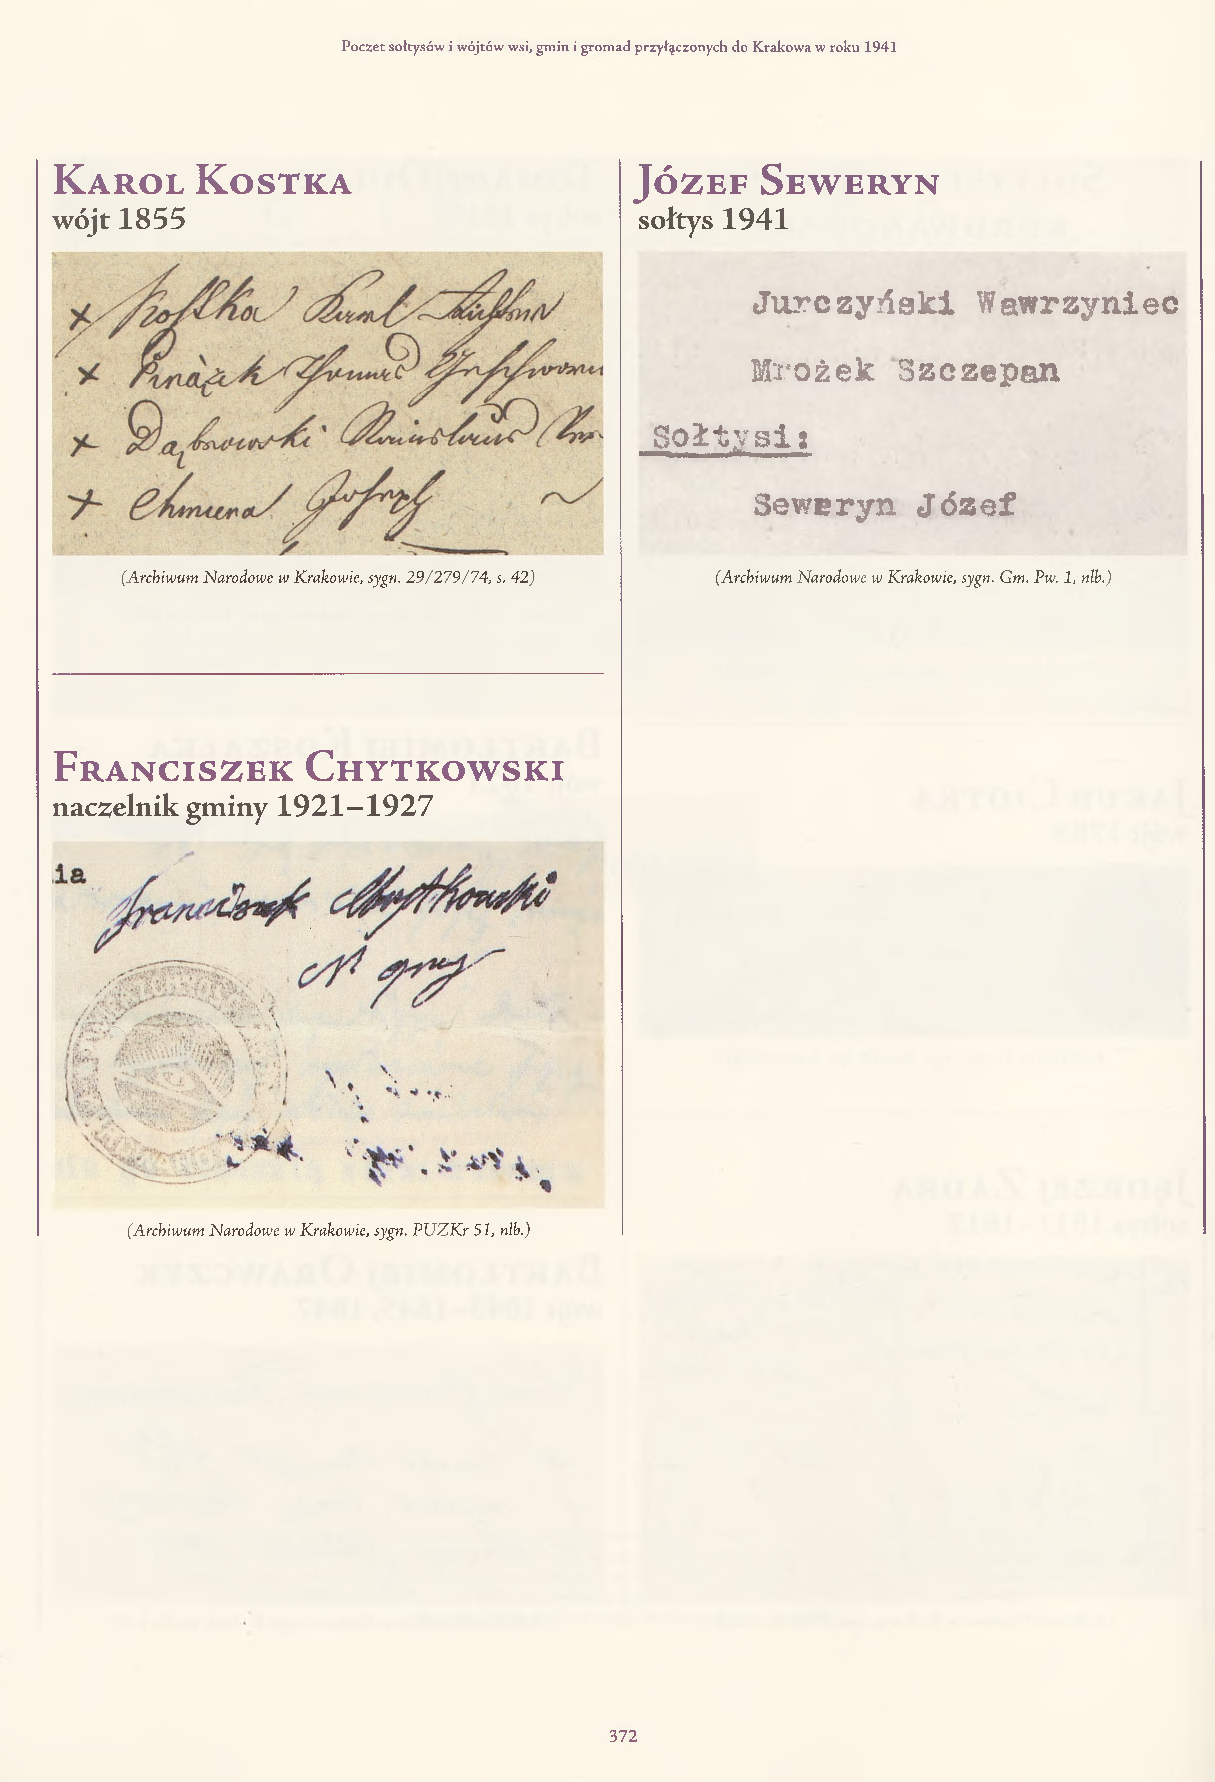 Poczet sołtysów i wójtów wsi, gmin i gromad przyłączonych do Krakowa w roku 1941
Karol Kostka
wójt 1855
Kostka Karl
Thomas
Dąbrowski Stanislaus
Chmura Joseph
(Archiwum Narodowe w Krakowie, sygn. 29/279/74, s. 42)
Franciszek Chytkowski
naczelnik gminy 1921–1927
ia
Franciszek Chytkowski
N gminy
(Archiwum Narodowe w Krakowie, sygn. PUZKr 51, nlb.)
Józef Seweryn
sołtys 1941
Jurczyński Wawrzyniec
Mrożek Szczepan
Sołtysi:
Seweryn Józef
(Archiwum Narodowe w Krakowie, sygn. Gm. Pw. 1, nlb.)
372